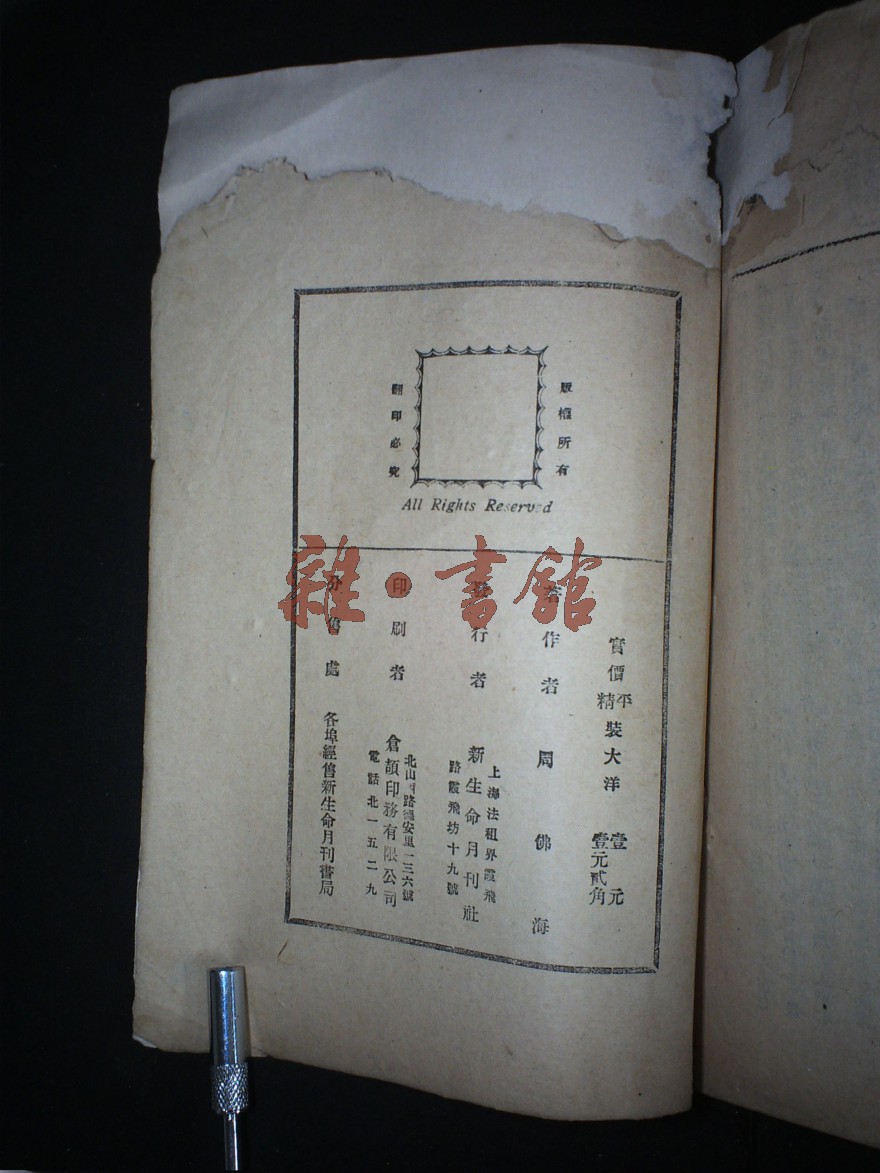 版權所有
翻印必究
All Rights Reserved
實價
平精
裝大洋
壹元
壹元貳角
著作者
周佛海
發行者
上海法租界霞飛
路霞飛坊十九號
新生命月刊社
印刷者
北山西路德安里一三六號
倉頡印務有限公司
電話北一五二九
分售處
各埠經售新生命月刊書局
雜·書館